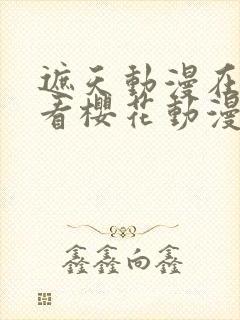 遮天動漫在
看櫻花動漫
鑫鑫向鑫